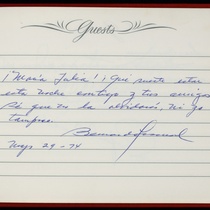 Guests
¡María Julia! ¡Qué suerte estar
esta noche contigo y tus amigos
Sé que no la olvidaré, ni yo
tampoco.
Mayo 29 - 74